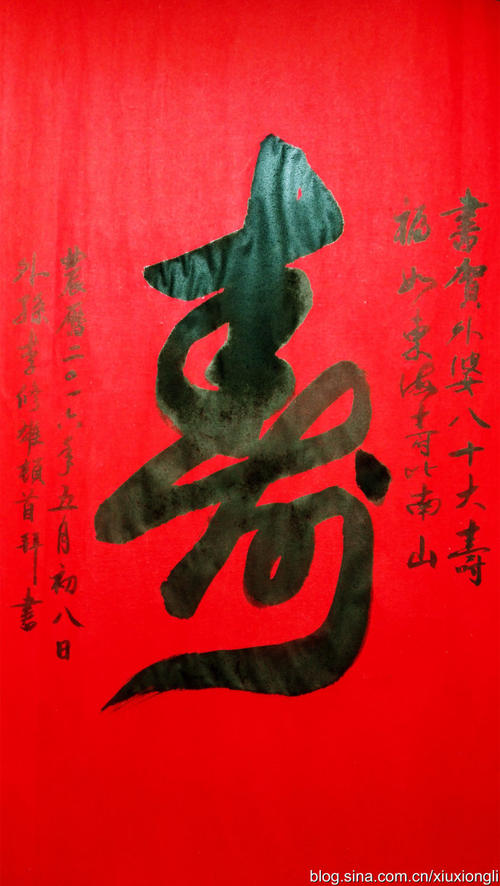 書賀外婆八十大壽
福如東海壽比南山
壽
農曆二〇一六年五月初八日
外孫李修雄頓首拜書
blog.sina.com.cn/xiuxiongli